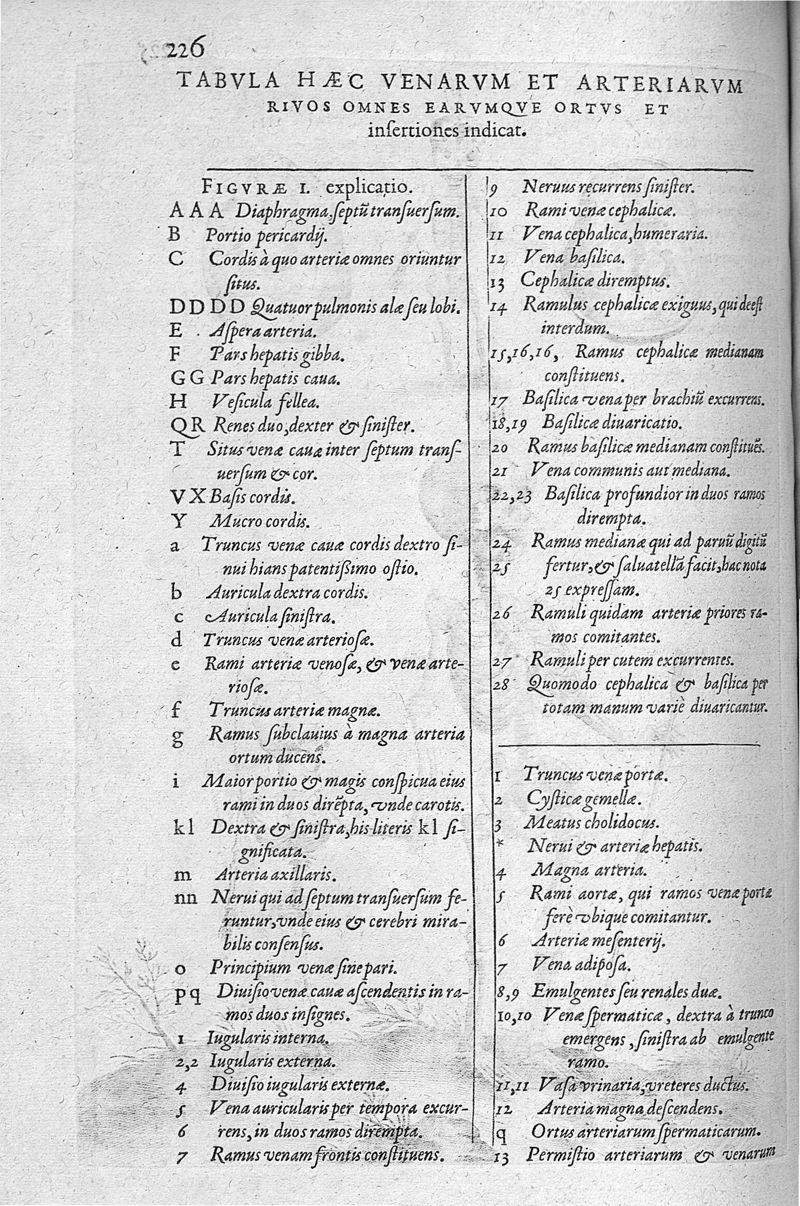 226
TABVLA HÆC VENARVM ET ARTERIARVM
RIVOS OMNES EARVMQVE ORTVS ET
inſertiones indicat.
FIGVRÆ I. explicatio.
A A A Diaphragma, ſeptū tranſuerſum.
B Portio pericardij.
C Cordis à quo arteriæ omnes oriuntur
ſitus.
D D D D Quatuor pulmonis alæ ſeu lobi.
E Aſpera arteria.
F Pars hepatis gibba.
G G Pars hepatis caua.
H Veſicula fellea.
Q R Renes duo, dexter & ſiniſter.
T Situs venæ cauæ inter ſeptum tranſ-
uerſum & cor.
V X Baſis cordis.
Y Mucro cordis.
a Truncus venæ cauæ cordis dextro ſi-
nui hians patentißimo oſtio.
b Auricula dextra cordis.
c Auricula ſiniſtra.
d Truncus venæ arterioſæ.
e Rami arteriæ venoſæ, & venæ arte-
rioſæ.
f Truncus arteriæ magnæ.
g Ramus ſubclauius à magna arteria
ortum ducens.
i Maior portio & magis conſpicua eius
rami in duos dirēpta, vnde carotis.
k l Dextra & ſiniſtra, his literis k l ſi-
gnificata.
m Arteria axillaris.
nn Nerui qui ad ſeptum tranſuerſum fe-
runtur, vnde eius & cerebri mira-
bilis conſenſus.
o Principium venæ ſine pari.
p q Diuiſio venæ cauæ aſcendentis in ra-
mos duos inſignes.
1 Iugularis interna.
2,2 Iugularis externa.
4 Diuiſio iugularis externæ.
5 Vena auricularis per tempora excur-
6 rens, in duos ramos dirempta.
7 Ramus venam frontis conſtituens.
9 Neruus recurrens ſiniſter.
10 Rami venæ cephalicæ.
11 Vena cephalica, humeraria.
12 Vena baſilica.
13 Cephalicæ diremptus.
14 Ramulus cephalicæ exiguus, qui deeſt
interdum.
15,16,16, Ramus cephalicæ medianam
conſtituens.
17 Baſilica vena per brachiū excurrens.
18,19 Baſilicæ diuaricatio.
20 Ramus baſilicæ medianam conſtituēs.
21 Vena communis aut mediana.
22,23 Baſilica profundior in duos ramos
dirempta.
24 Ramus medianæ qui ad paruū digitū
25 fertur, & ſaluatellā facit, hac nota
25 expreſſam.
26 Ramuli quidam arteriæ priores ra-
mos comitantes.
27 Ramuli per cutem excurrentes.
28 Quomodo cephalica & baſilica per
totam manum variè diuaricantur.
1 Truncus venæ portæ.
2 Cyſticæ gemellæ.
3 Meatus cholidocus.
* Nerui & arteriæ hepatis.
4 Magna arteria.
5 Rami aortæ, qui ramos venæ portæ
ferè vbique comitantur.
6 Arteriæ meſenterij.
7 Vena adipoſa.
8,9 Emulgentes ſeu renales duæ.
10,10 Venæ ſpermaticæ, dextra à trunco
emergens, ſiniſtra ab emulgente
ramo.
11,11 Vaſa vrinaria, vreteres ductus.
12 Arteria magna deſcendens.
q Ortus arteriarum ſpermaticarum.
13 Permiſtio arteriarum & venarum